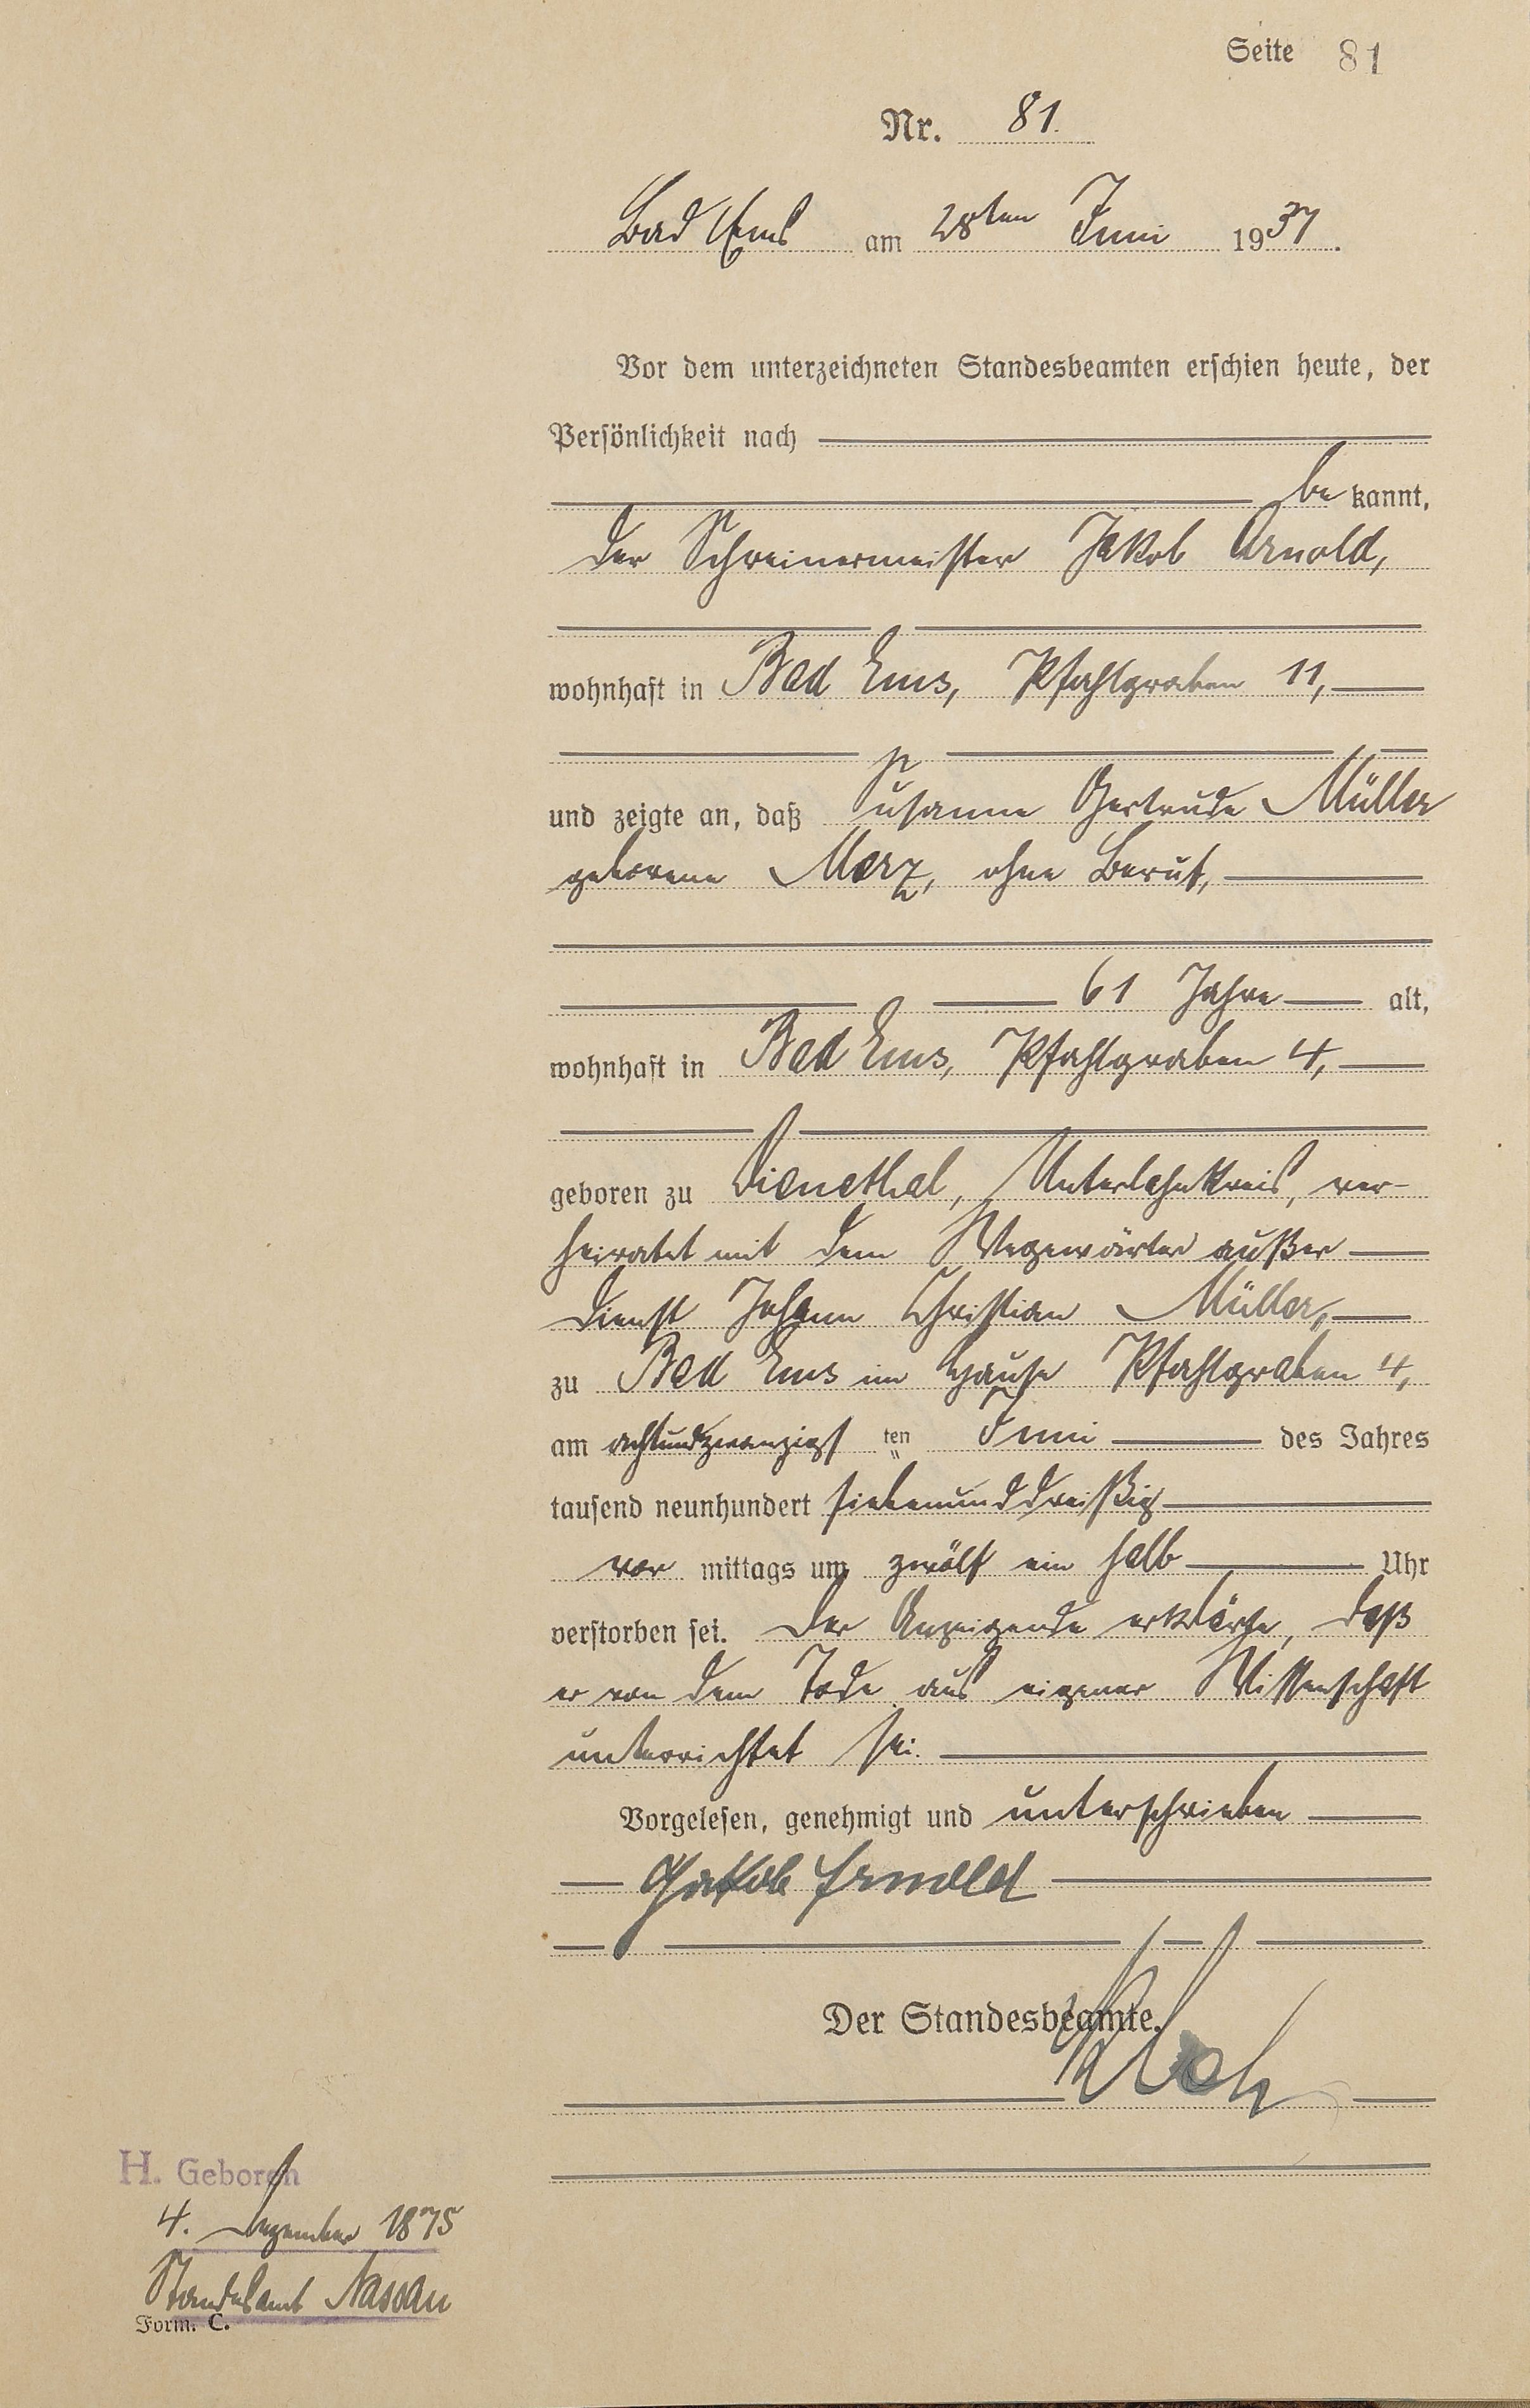 Seite 81
Nr. 81.
Bad Ems am 28ten Juni 1937.
Vor dem unterzeichneten Standesbeamten erschien heute, der
Persönlichkeit nach
bekannt,
der Schreinermeister Jakob Arnold,
wohnhaft in Bad Ems, Pfahlgraben 11,
und zeigte an, daß Susanna Gertrude Müller
geborene Merz, ohne Beruf,
61 Jahre alt,
wohnhaft in Bad Ems, Pfahlgraben 4,
geboren zu Dienethal, Unterlahnkreis, ver-
heiratet mit dem Wegewärter außer
Dienst Johann Christian Müller,
zu Bad Ems im Hause Pfahlgraben 4,
am achtundzwanzigsten Juni des Jahres
tausend neunhundert siebenunddreißig
vormittags um zwölf ein halb Uhr
verstorben sei. Der Anzeigende erklärte, daß
er von dem Tode aus eigener Wissenschaft
unterrichtet sei.
Vorgelesen, genehmigt und unterschrieben
Jakob Arnold
Der Standesbeamte.
Koch
H. Geboren
4. Dezember 1875
Standesamt Nassau
Form. C.